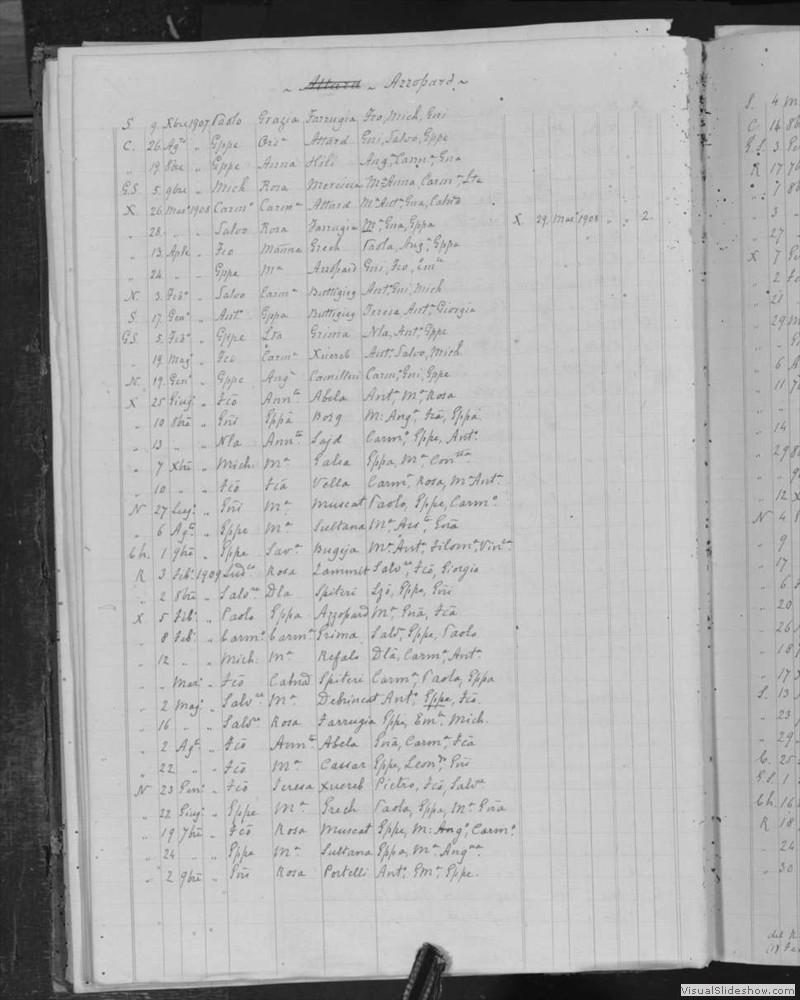 ~ Attard ~ Azzopard. ~
S 9 Xbre 1907 Paolo Grazia Farrugia Fco, Mich, Gni
C. 26 Agto „ Gppe Orsa Attard Gni, Salvo, Gppe
„ 19 8bre „ Gppe Anna Hili Anga, Carma, Gna
G.S 5 9bre „ Mich Rosa Mercieca Ma Anna, Carma, Lta
X 26 Marzo 1908 Carmo Carma Attard Ma Anta, Gna,
„ 28 „ „ Salvo Rosa Farrugia Ma, Gna, Gppa X 29 Marzo 1908 „ „ 2
„ 13 Aple „ Fco Manna Grech Paola, Anga, Gppa
„ 24 „ „ Gppe Ma Azzopard Gni, Fco, Emla
N. 3 Febo „ Salvo Carma Buttigieg Anto, Gni, Mich
S 17 Geno „ Anto Gppa Buttigieg Teresa, Anto, Giorgia
G.S 5 Febo „ Gppe Lta Grima Nla, Anto, Gppe
„ 19 Mago „ Fco Carma Xuereb Anto, Salvo, Mich
N. 19 Geno „ Gppe Anga Camilleri Carmo, Gni, Gppe
X 25 Giugo „ Fco Annta Abela Anto, Ma, Rosa
„ 10 8bre „ Gni Gppa Borg M: Anga, Fca, Gppa
„ 13 „ „ Nla Annta Sajd Carmo, Gppe, Anto
„ 7 Xbre „ Mich: Ma Galea Gppa, Ma,
„ 10 „ „ Fco Fca Vella Carmo, Rosa, Ma Anta
N 27 Lugo „ Gni Ma Muscat Paolo, Gppe, Carmo
„ 6 Agto „ Gppe Ma Sultana Ma, Gna
Ch. 1 9bre „ Gppe Sava Bugeja Ma Anta, Filoma, Vinca
R 3 Febo 1909 Rosa Zammit Salvre, Fco, Giorgio
„ 2 8bre „ Salvre Dla Spiteri Gppe, Gni
X 5 Feb: „ Paolo Gppa Azzopard Ma, Gna, Fca
„ 8 Feb: „ Carmo Carma Grima Salvre, Gppe, Paolo
„ 12 „ „ Mich: Ma Refalo Dla, Carma, Anto
„ „ Marzo „ Fco Spiteri Carma, Paola, Gppa
„ 2 Mago „ Salvre Ma Debrincat Anto, Gppa, Fco
„ 16 „ „ Salvre Rosa Farrugia Gppa, Emla, Mich.
„ 2 Agto „ Fco Annta Abela Gna, Carma, Fca
„ 22 „ „ Fco Ma Cassar Gppe, Leonda, Gni
N 23 Geno „ Fco Teresa Xuereb Pietro, Fco, Salvre
„ 22 Giugo „ Gppe Ma Grech Paola, Gppa, Ma Gna
„ 19 7bre „ Fco Rosa Muscat Gppe, M: Anga, Carmo
„ 24 „ „ Gppe Ma Sultana Gppa, Ma Anga
„ 2 9bre „ Gni Rosa Portelli Anto, Ema, Gppe.
S. 4
C 14
G.S. 3
R 17
„ 7
„ 3
„ 27
X 7
„ 2
„ 21
„ 29
„ 6
„ 11
„ 14
„ 29
„ 12
N 4
„ 9
„ 17
„ 6
„ 20
„ 26
„ 18
„ 17
S. 13
„ 23
„ 29
C. 25
G.S. 1
Ch. 16
R 18
„ 24
„ 30
VisualSlideshow.com